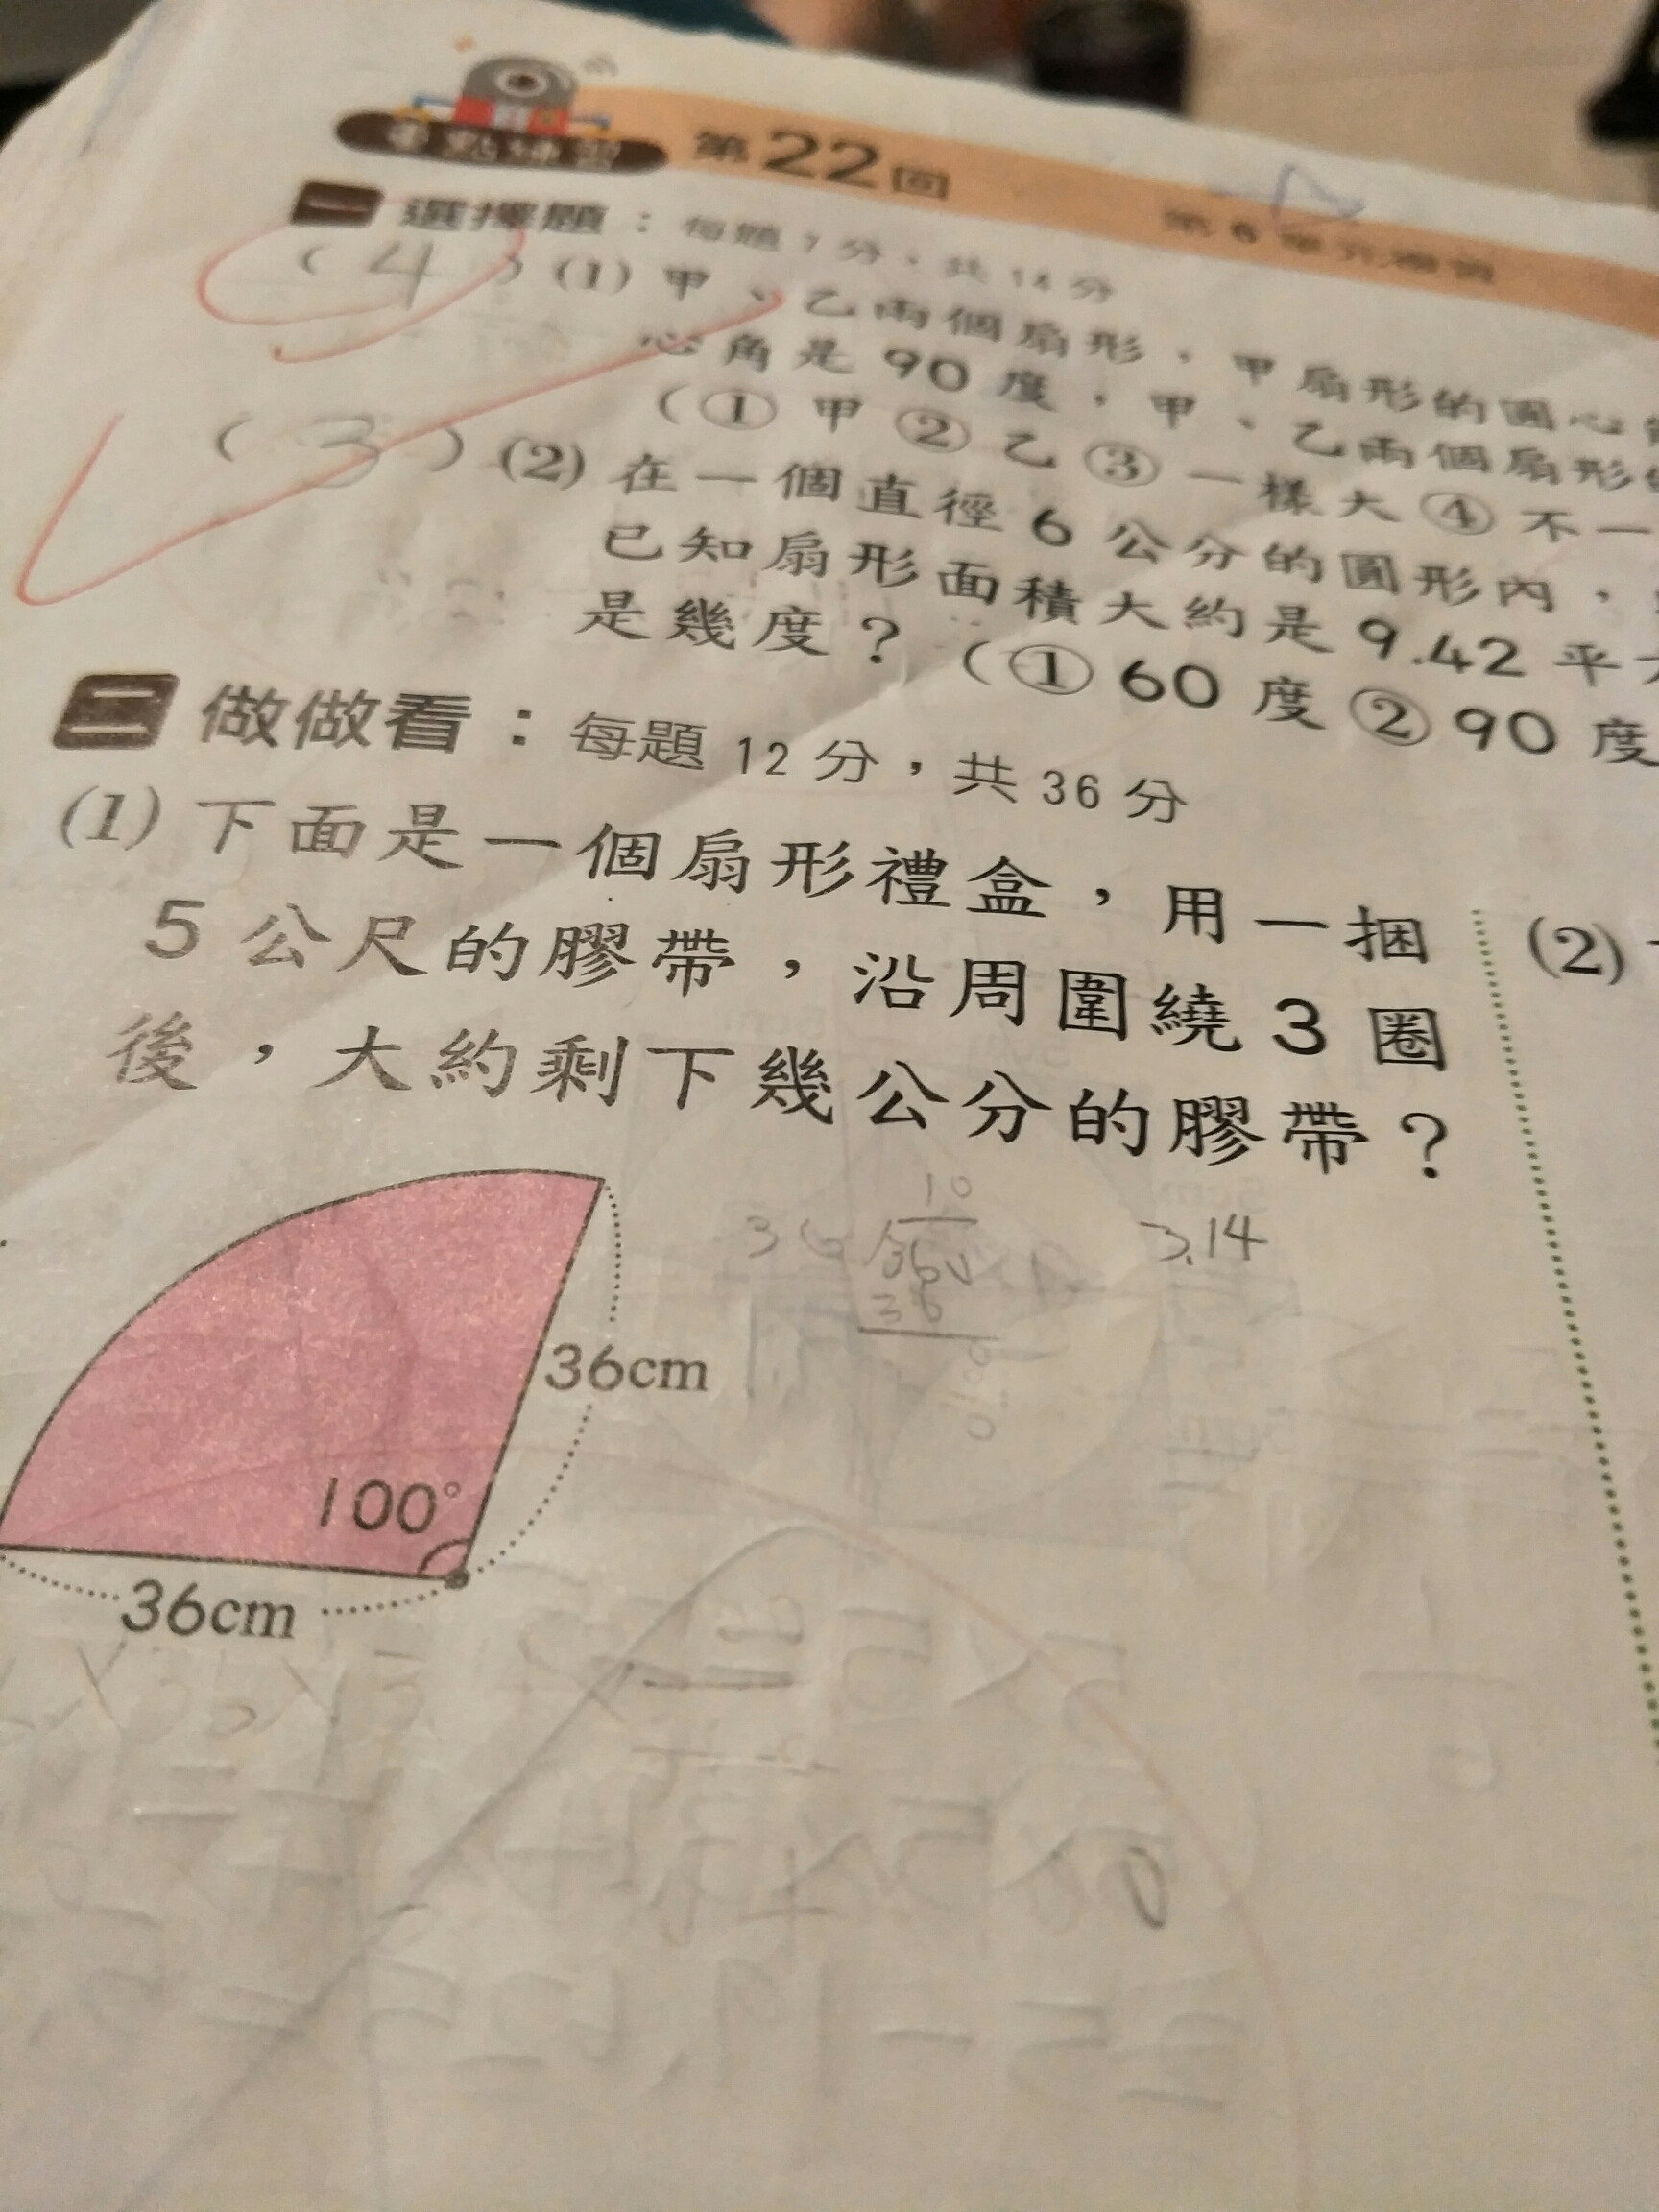 重點練習 第22回
第6單元學習
一 選擇題：每題7分，共14分
(4)(1)甲、乙兩個扇形，甲扇形的圓心
心角是90度，甲、乙兩個扇形
(①甲②乙③一樣大④不一
(3)(2)在一個直徑6公分的圓形內，
已知扇形面積大約是9.42平
是幾度？(①60度②90度
二 做做看：每題12分，共36分
(1)下面是一個扇形禮盒，用一捆
5公尺的膠帶，沿周圍繞3圈
後，大約剩下幾公分的膠帶？
(2)
10
36 360
36
3.14
36cm
100°
36cm